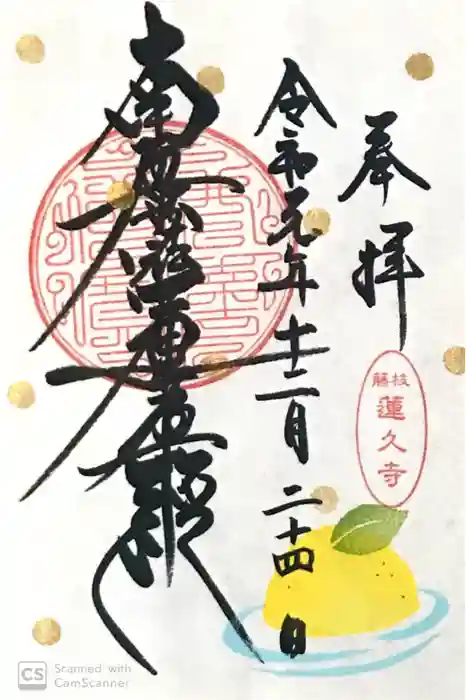 奉拝
藤枝
蓮久寺
令和元年十二月二十四日
南無妙法蓮華経
CS Scanned with
CamScanner